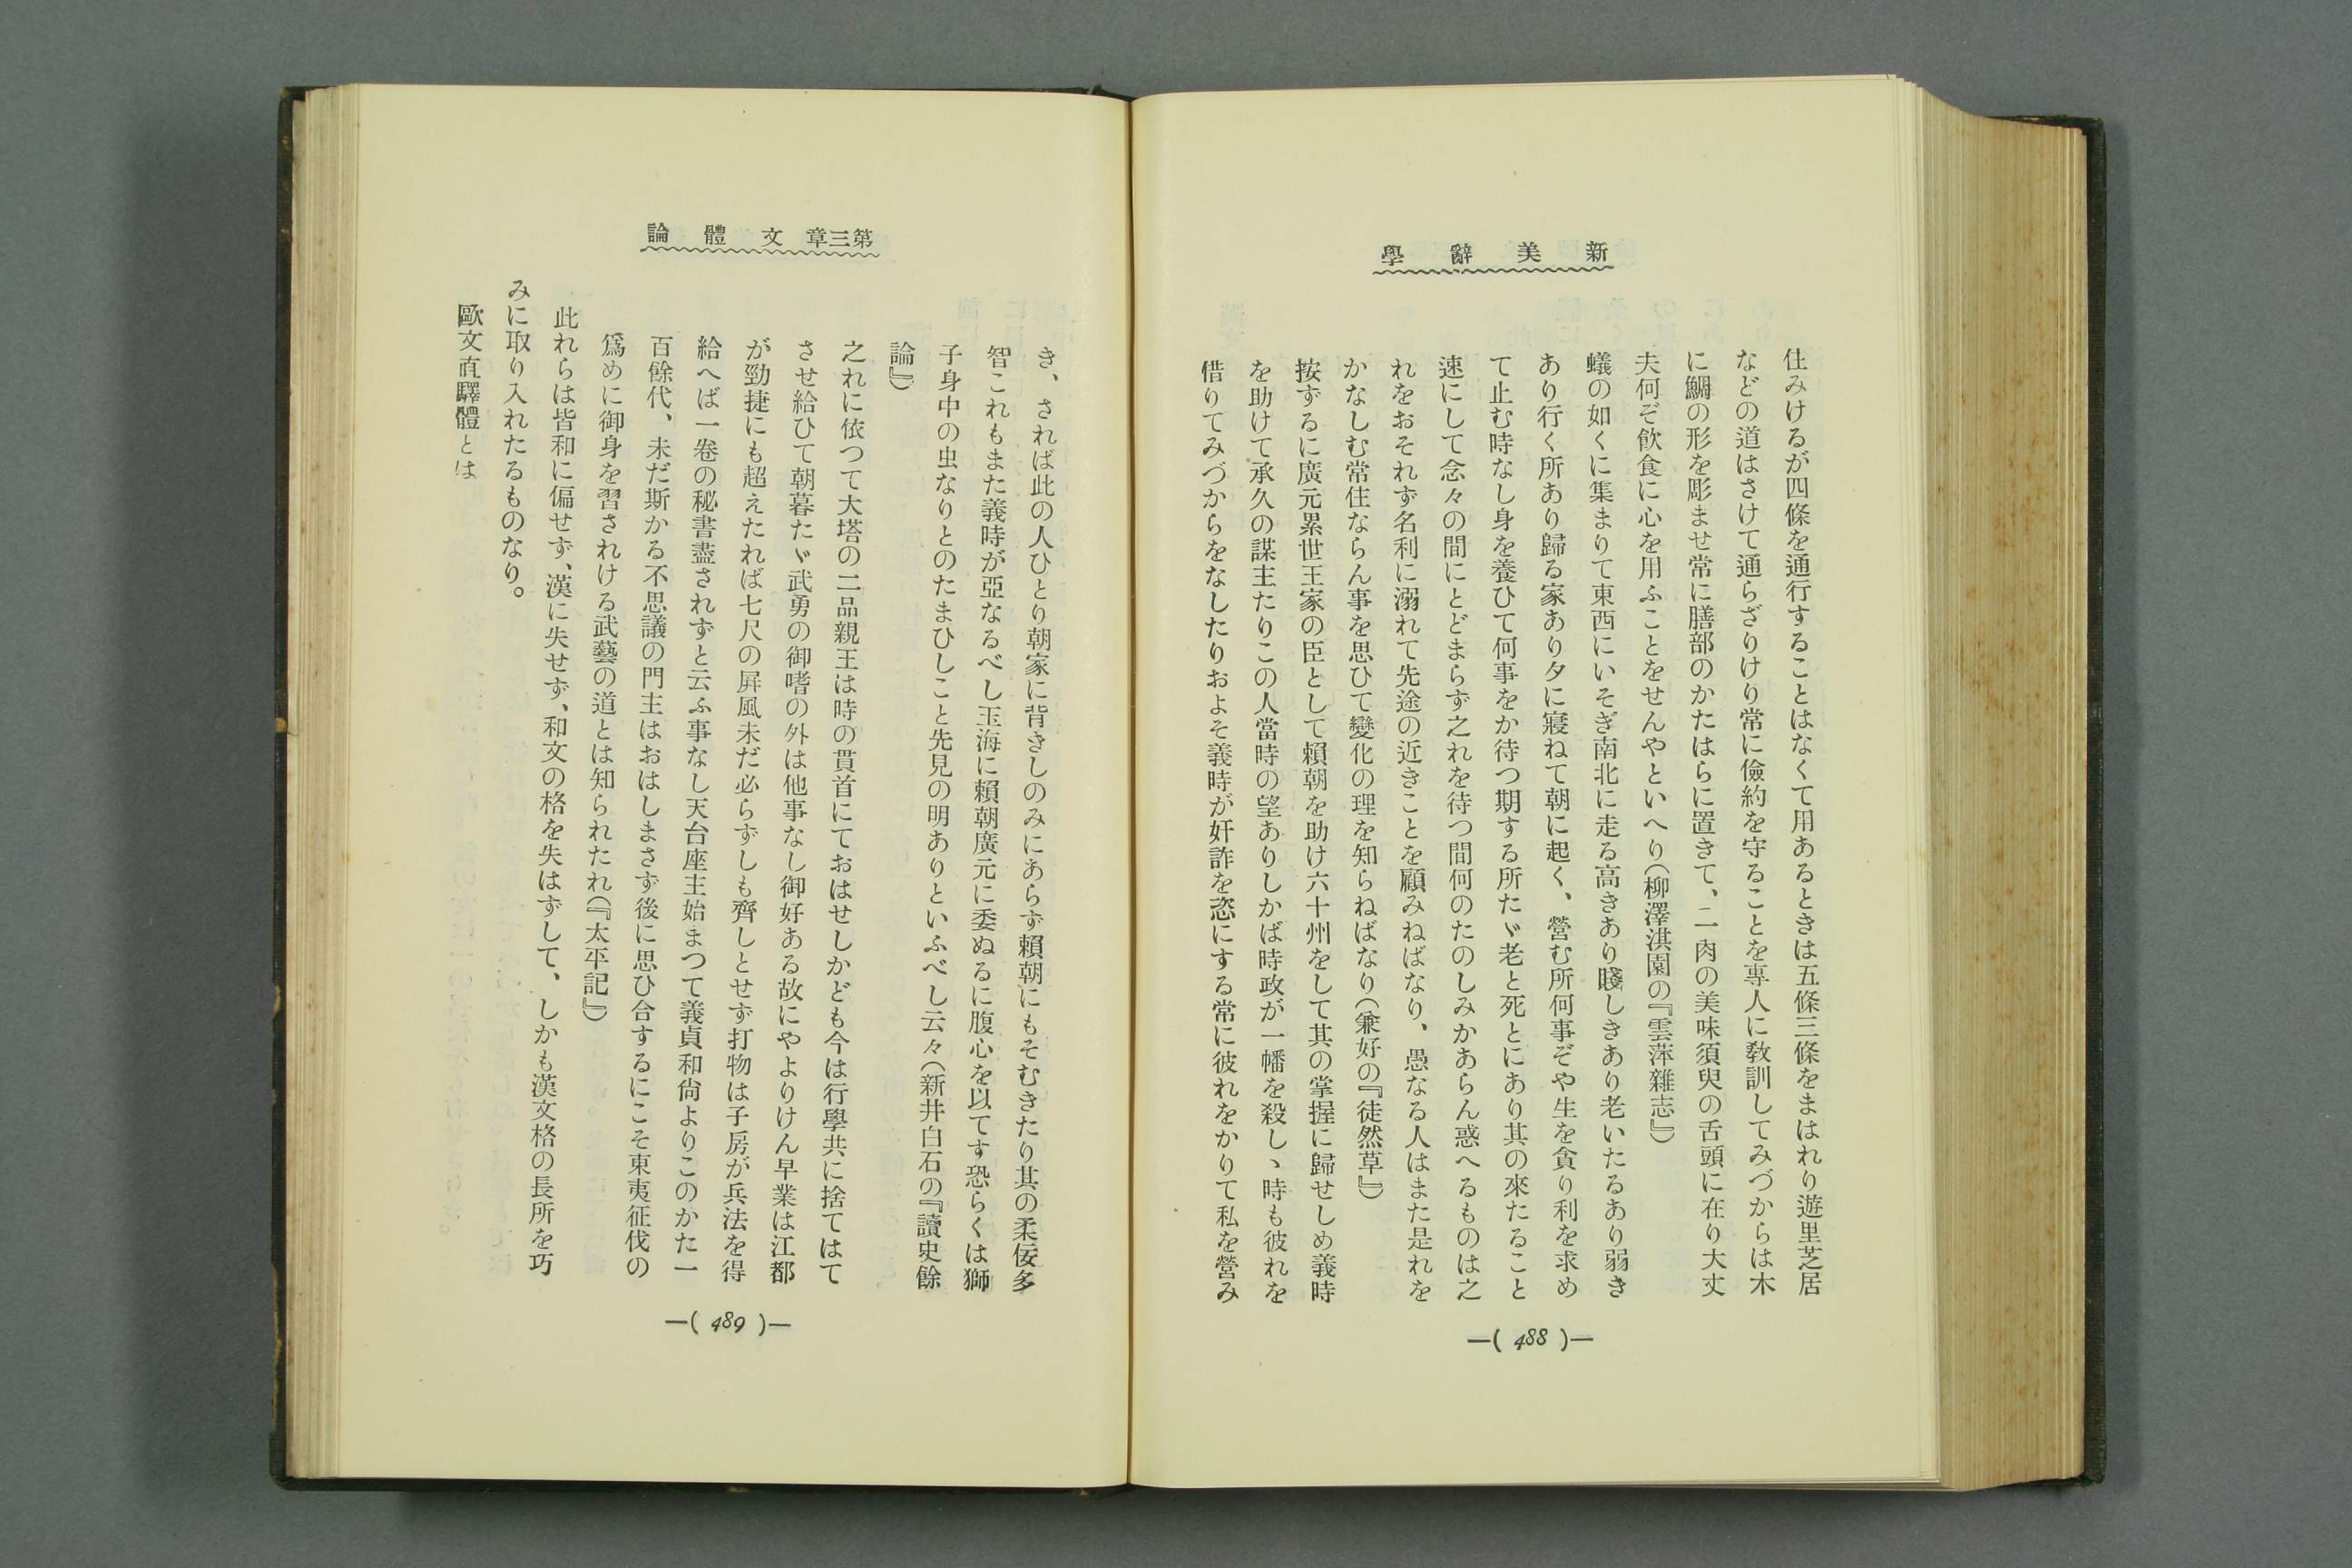 新美辭學
住みけるが四條を通行することはなくて用あるときは五條三條をまはれり遊里芝居
などの道はさけて通らざりけり常に儉約を守ることを專人に敎訓してみづからは木
に鯛の形を彫ませ常に膳部のかたはらに置きて、二肉の美味須臾の舌頭に在り大丈
夫何ぞ飮食に心を用ふことをせんやといへり(柳澤淇園の『雲萍雜志』)
蟻の如くに集まりて東西にいそぎ南北に走る高きあり賤しきあり老いたるあり弱き
あり行く所あり歸る家あり夕に寢ねて朝に起く、營む所何事ぞや生を貪り利を求め
て止む時なし身を養ひて何事をか待つ期する所たゞ老と死とにあり其の來たること
速にして念々の間にとどまらず之れを待つ間何のたのしみかあらん惑へるものは之
れをおそれず名利に溺れて先途の近きことを顧みねばなり、愚なる人はまた是れを
かなしむ常住ならん事を思ひて變化の理を知らねばなり(兼好の『徒然草』)
按ずるに廣元累世王家の臣として賴朝を助け六十州をして其の掌握に歸せしめ義時
を助けて承久の謀主たりこの人當時の望ありしかば時政が一幡を殺しゝ時も彼れを
借りてみづからをなしたりおよそ義時が奸詐を恣にする常に彼れをかりて私を營み
―( 488 )―
第三章 文體論
き、されば此の人ひとり朝家に背きしのみにあらず賴朝にもそむきたり其の柔佞多
智これもまた義時が亞なるべし玉海に賴朝廣元に委ぬるに腹心を以てす恐らくは獅
子身中の虫なりとのたまひしこと先見の明ありといふべし云々(新井白石の『讀史餘
論』)
之れに依つて大塔の二品親王は時の貫首にておはせしかども今は行學共に捨てはて
させ給ひて朝暮たゞ武勇の御嗜の外は他事なし御好ある故にやよりけん早業は江都
が勁捷にも超えたれば七尺の屛風未だ必らずしも齊しとせず打物は子房が兵法を得
給へば一卷の秘書盡されずと云ふ事なし天台座主始まつて義貞和尙よりこのかた一
百餘代、未だ斯かる不思議の門主はおはしまさず後に思ひ合するにこそ東夷征伐の
爲めに御身を習されける武藝の道とは知られたれ(『太平記』)
此れらは皆和に偏せず、漢に失せず、和文の格を失はずして、しかも漢文格の長所を巧
みに取り入れたるものなり。
歐文直驛體とは
―( 489 )―